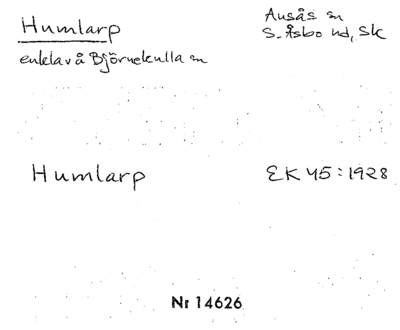 Humlarp
Ausås sn
S. Åsbo hd, Sk
enklav å Björnekulla sn
Humlarp
EK 45:1928
Nr 14626